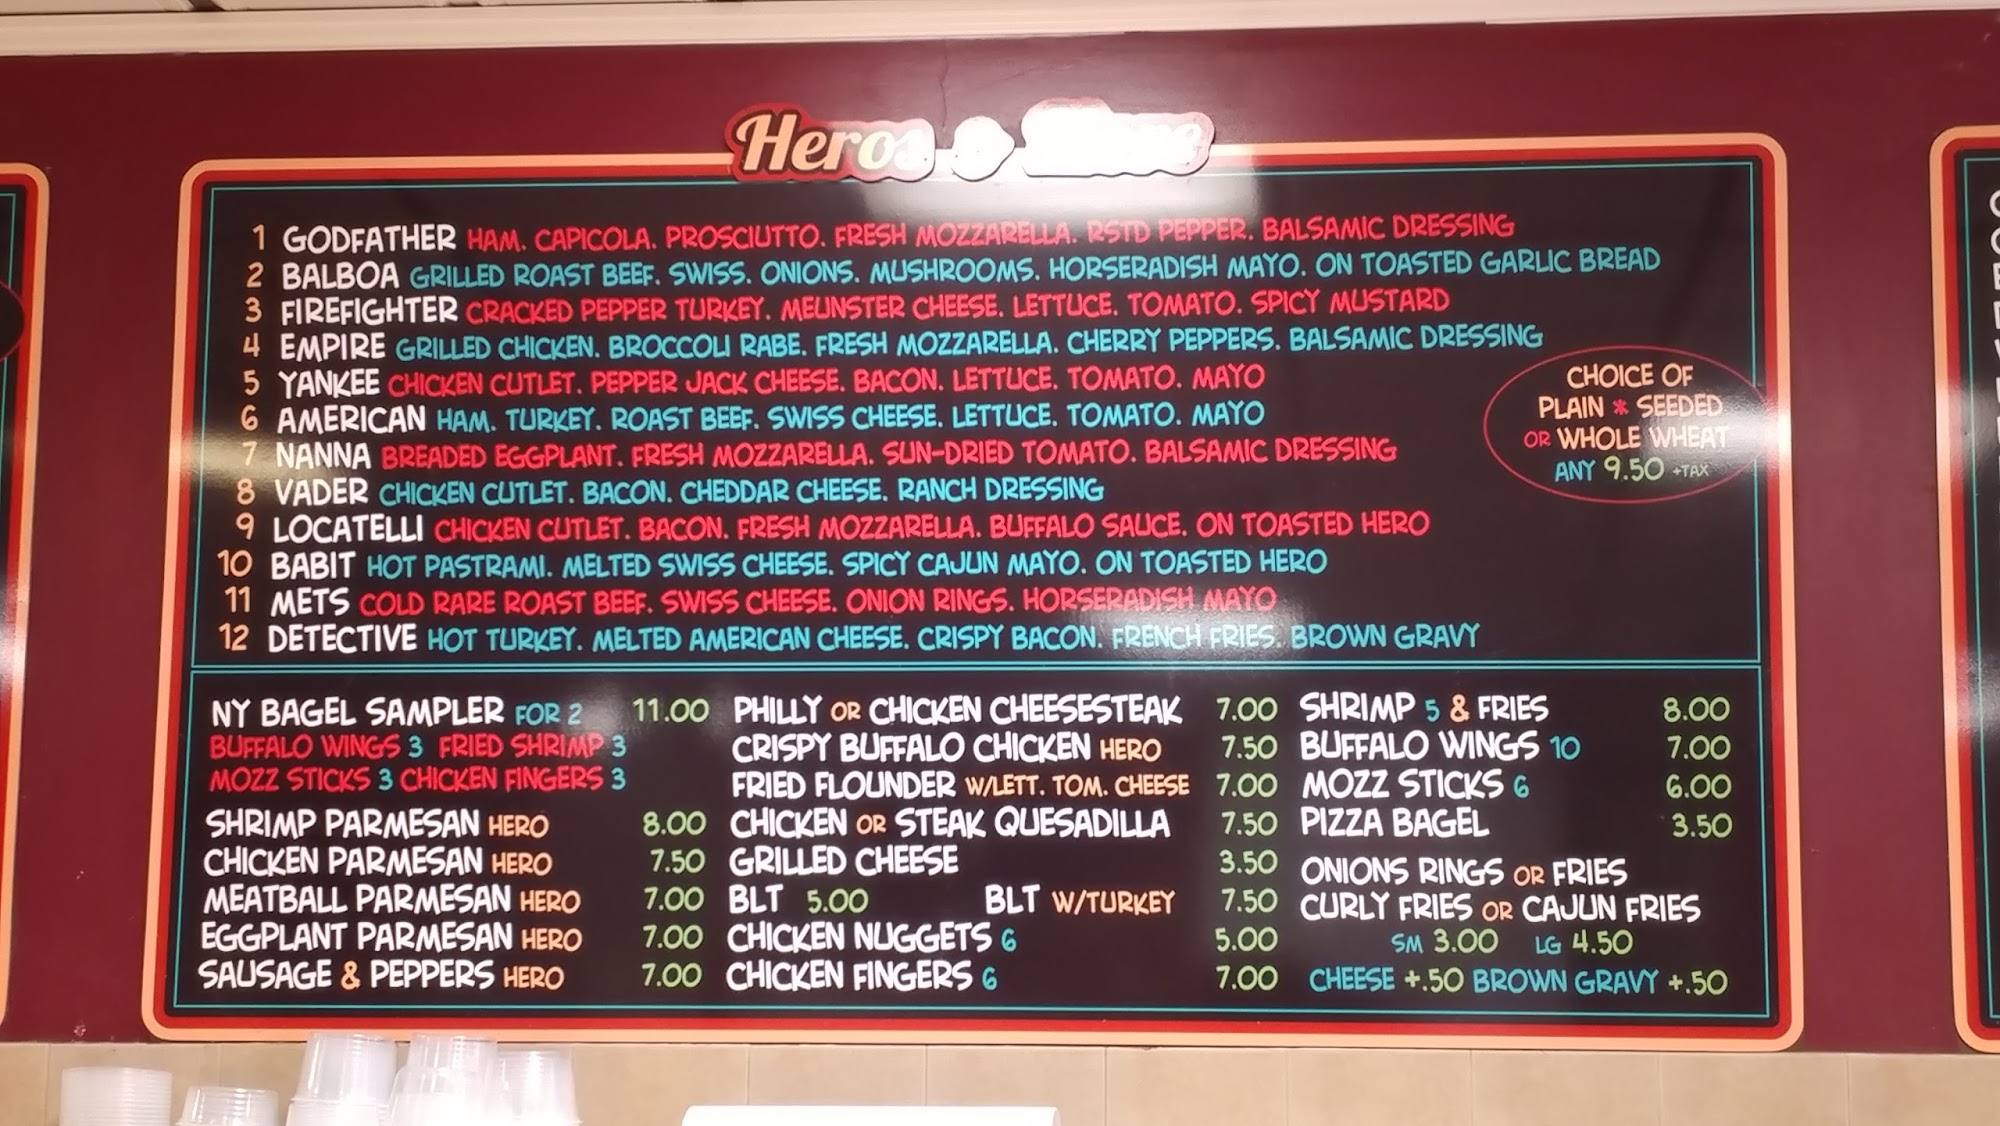 Heros &
1 GODFATHER HAM. CAPICOLA. PROSCIUTTO. FRESH MOZZARELLA. RSTD PEPPER. BALSAMIC DRESSING
2 BALBOA GRILLED ROAST BEEF. SWISS. ONIONS. MUSHROOMS. HORSERADISH MAYO. ON TOASTED GARLIC BREAD
3 FIREFIGHTER CRACKED PEPPER TURKEY. MEUNSTER CHEESE. LETTUCE. TOMATO. SPICY MUSTARD
4 EMPIRE GRILLED CHICKEN. BROCCOLI RABE. FRESH MOZZARELLA. CHERRY PEPPERS. BALSAMIC DRESSING
5 YANKEE CHICKEN CUTLET. PEPPER JACK CHEESE. BACON. LETTUCE. TOMATO. MAYO
6 AMERICAN HAM. TURKEY. ROAST BEEF. SWISS CHEESE. LETTUCE. TOMATO. MAYO
7 NANNA BREADED EGGPLANT. FRESH MOZZARELLA. SUN-DRIED TOMATO. BALSAMIC DRESSING
8 VADER CHICKEN CUTLET. BACON. CHEDDAR CHEESE. RANCH DRESSING
9 LOCATELLI CHICKEN CUTLET. BACON. FRESH MOZZARELLA. BUFFALO SAUCE. ON TOASTED HERO
10 BABIT HOT PASTRAMI. MELTED SWISS CHEESE. SPICY CAJUN MAYO. ON TOASTED HERO
11 METS COLD RARE ROAST BEEF. SWISS CHEESE. ONION RINGS. HORSERADISH MAYO
12 DETECTIVE HOT TURKEY. MELTED AMERICAN CHEESE. CRISPY BACON. FRENCH FRIES. BROWN GRAVY
CHOICE OF
PLAIN * SEEDED
OR WHOLE WHEAT
ANY 9.50 +TAX
NY BAGEL SAMPLER FOR 2 11.00
BUFFALO WINGS 3 FRIED SHRIMP 3
MOZZ STICKS 3 CHICKEN FINGERS 3
SHRIMP PARMESAN HERO 8.00
CHICKEN PARMESAN HERO 7.50
MEATBALL PARMESAN HERO 7.00
EGGPLANT PARMESAN HERO 7.00
SAUSAGE & PEPPERS HERO 7.00
PHILLY OR CHICKEN CHEESESTEAK 7.00
CRISPY BUFFALO CHICKEN HERO 7.50
FRIED FLOUNDER W/LETT. TOM. CHEESE 7.00
CHICKEN OR STEAK QUESADILLA 7.50
GRILLED CHEESE 3.50
BLT 5.00 BLT W/TURKEY 7.50
CHICKEN NUGGETS 6 5.00
CHICKEN FINGERS 6 7.00
SHRIMP 5 & FRIES 8.00
BUFFALO WINGS 10 7.00
MOZZ STICKS 6 6.00
PIZZA BAGEL 3.50
ONIONS RINGS OR FRIES
CURLY FRIES OR CAJUN FRIES
SM 3.00 LG 4.50
CHEESE +.50 BROWN GRAVY +.50